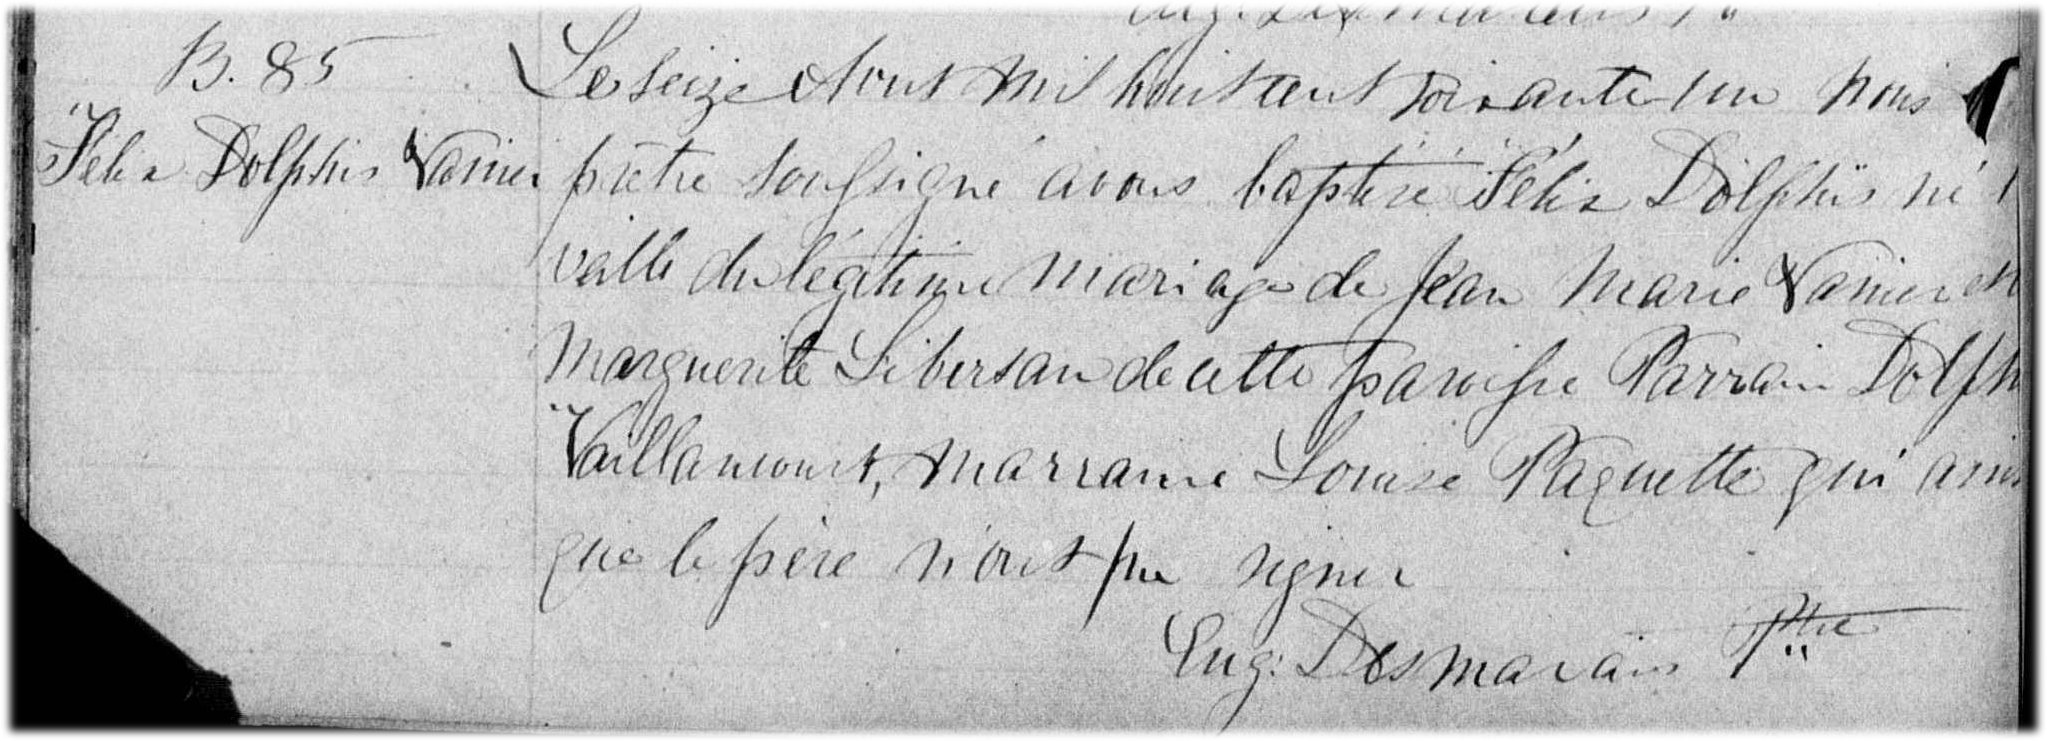 Eug. Desmarais Ptr
B. 85
Félix Dolphis Vanier
Le seize Aout mil huit cent soixante un nous
prêtre soussigné avons baptisé Félix Dolphis né l
veille du légitime mariage de Jean Marie Vanier et
Marguerite Libersan de cette paroisse Parrain Dolph
Vaillancourt, Marraine Louise Paquette qui ainsi
que le père n'ont pu signer
Eug. Desmarais Ptre